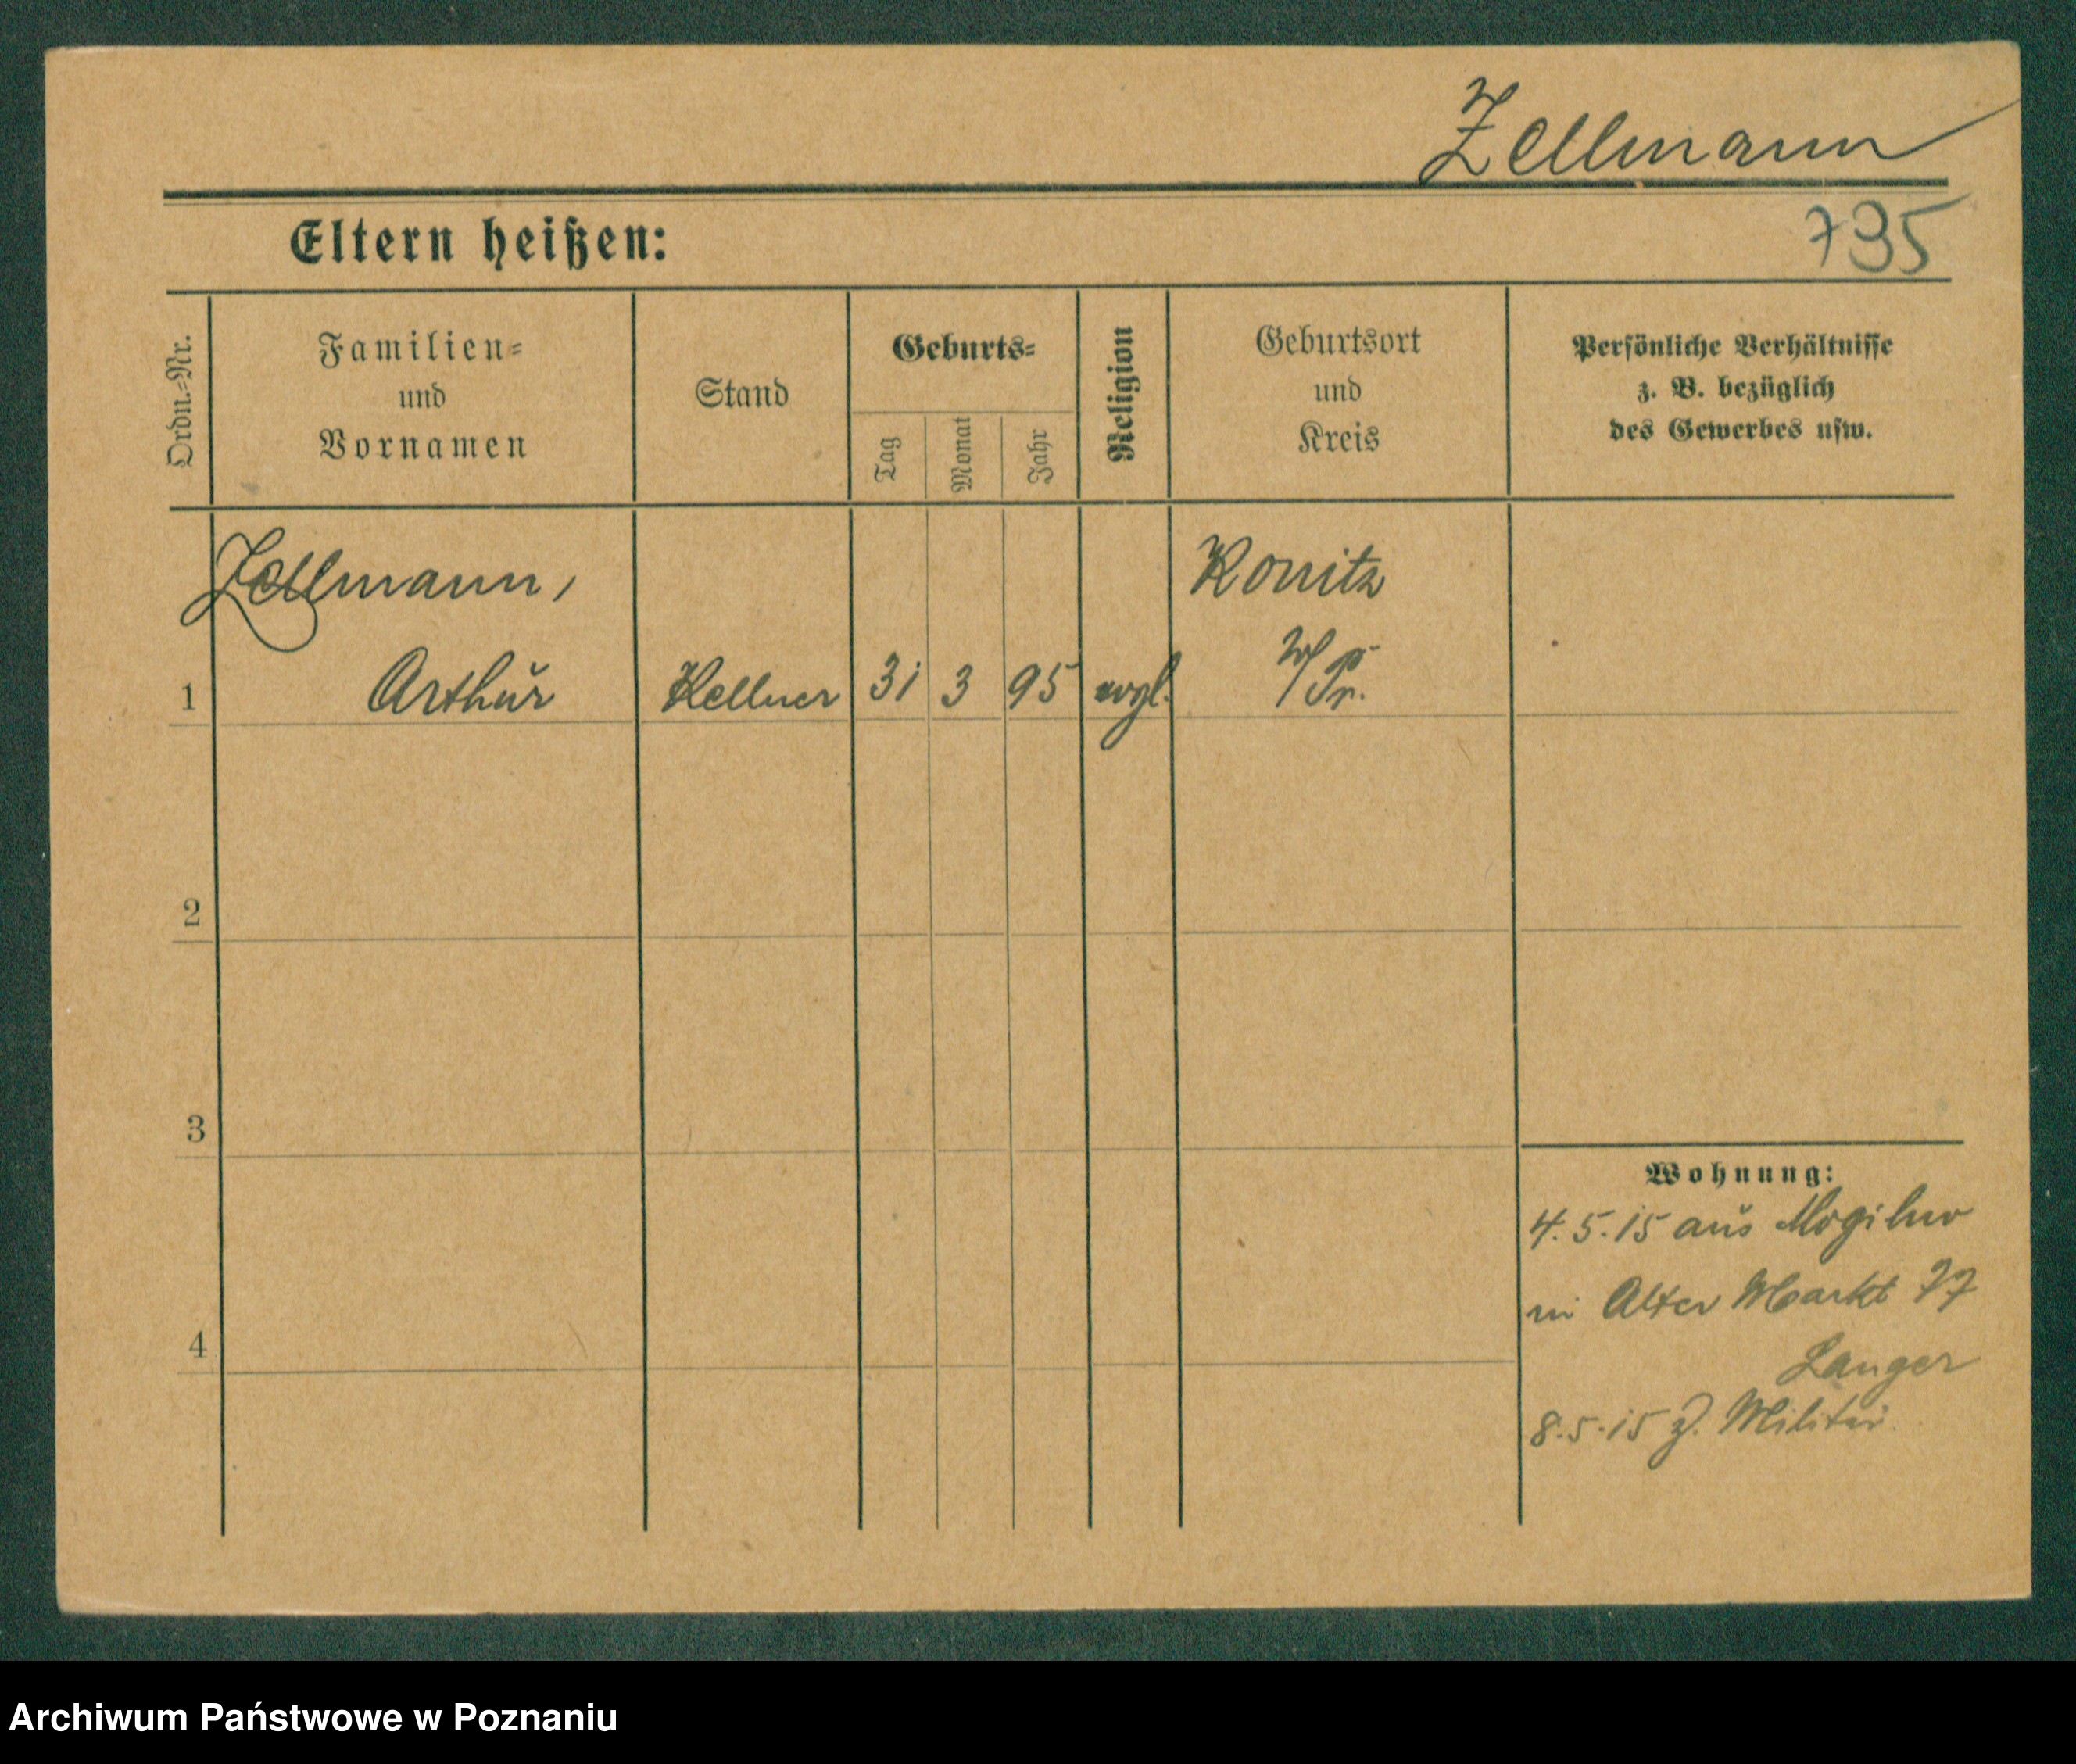 Zellmann
Eltern heißen:
735
Ordn.-Nr.
Familien-
und
Vornamen
Stand
Geburts-
Tag
Monat
Jahr
Religion
Geburtsort
und
Kreis
Persönliche Verhältnisse
z. B. bezüglich
des Gewerbes usw.
Zellmann,
Konitz
1 Arthur Kellner 31 3 95 evgl. W/Pr.
2
3
Wohnung:
4.5.15 aus Mogilno
in Alter Markt 77
4
Langer
8.5.15 z. Militär.
Archiwum Państwowe w Poznaniu